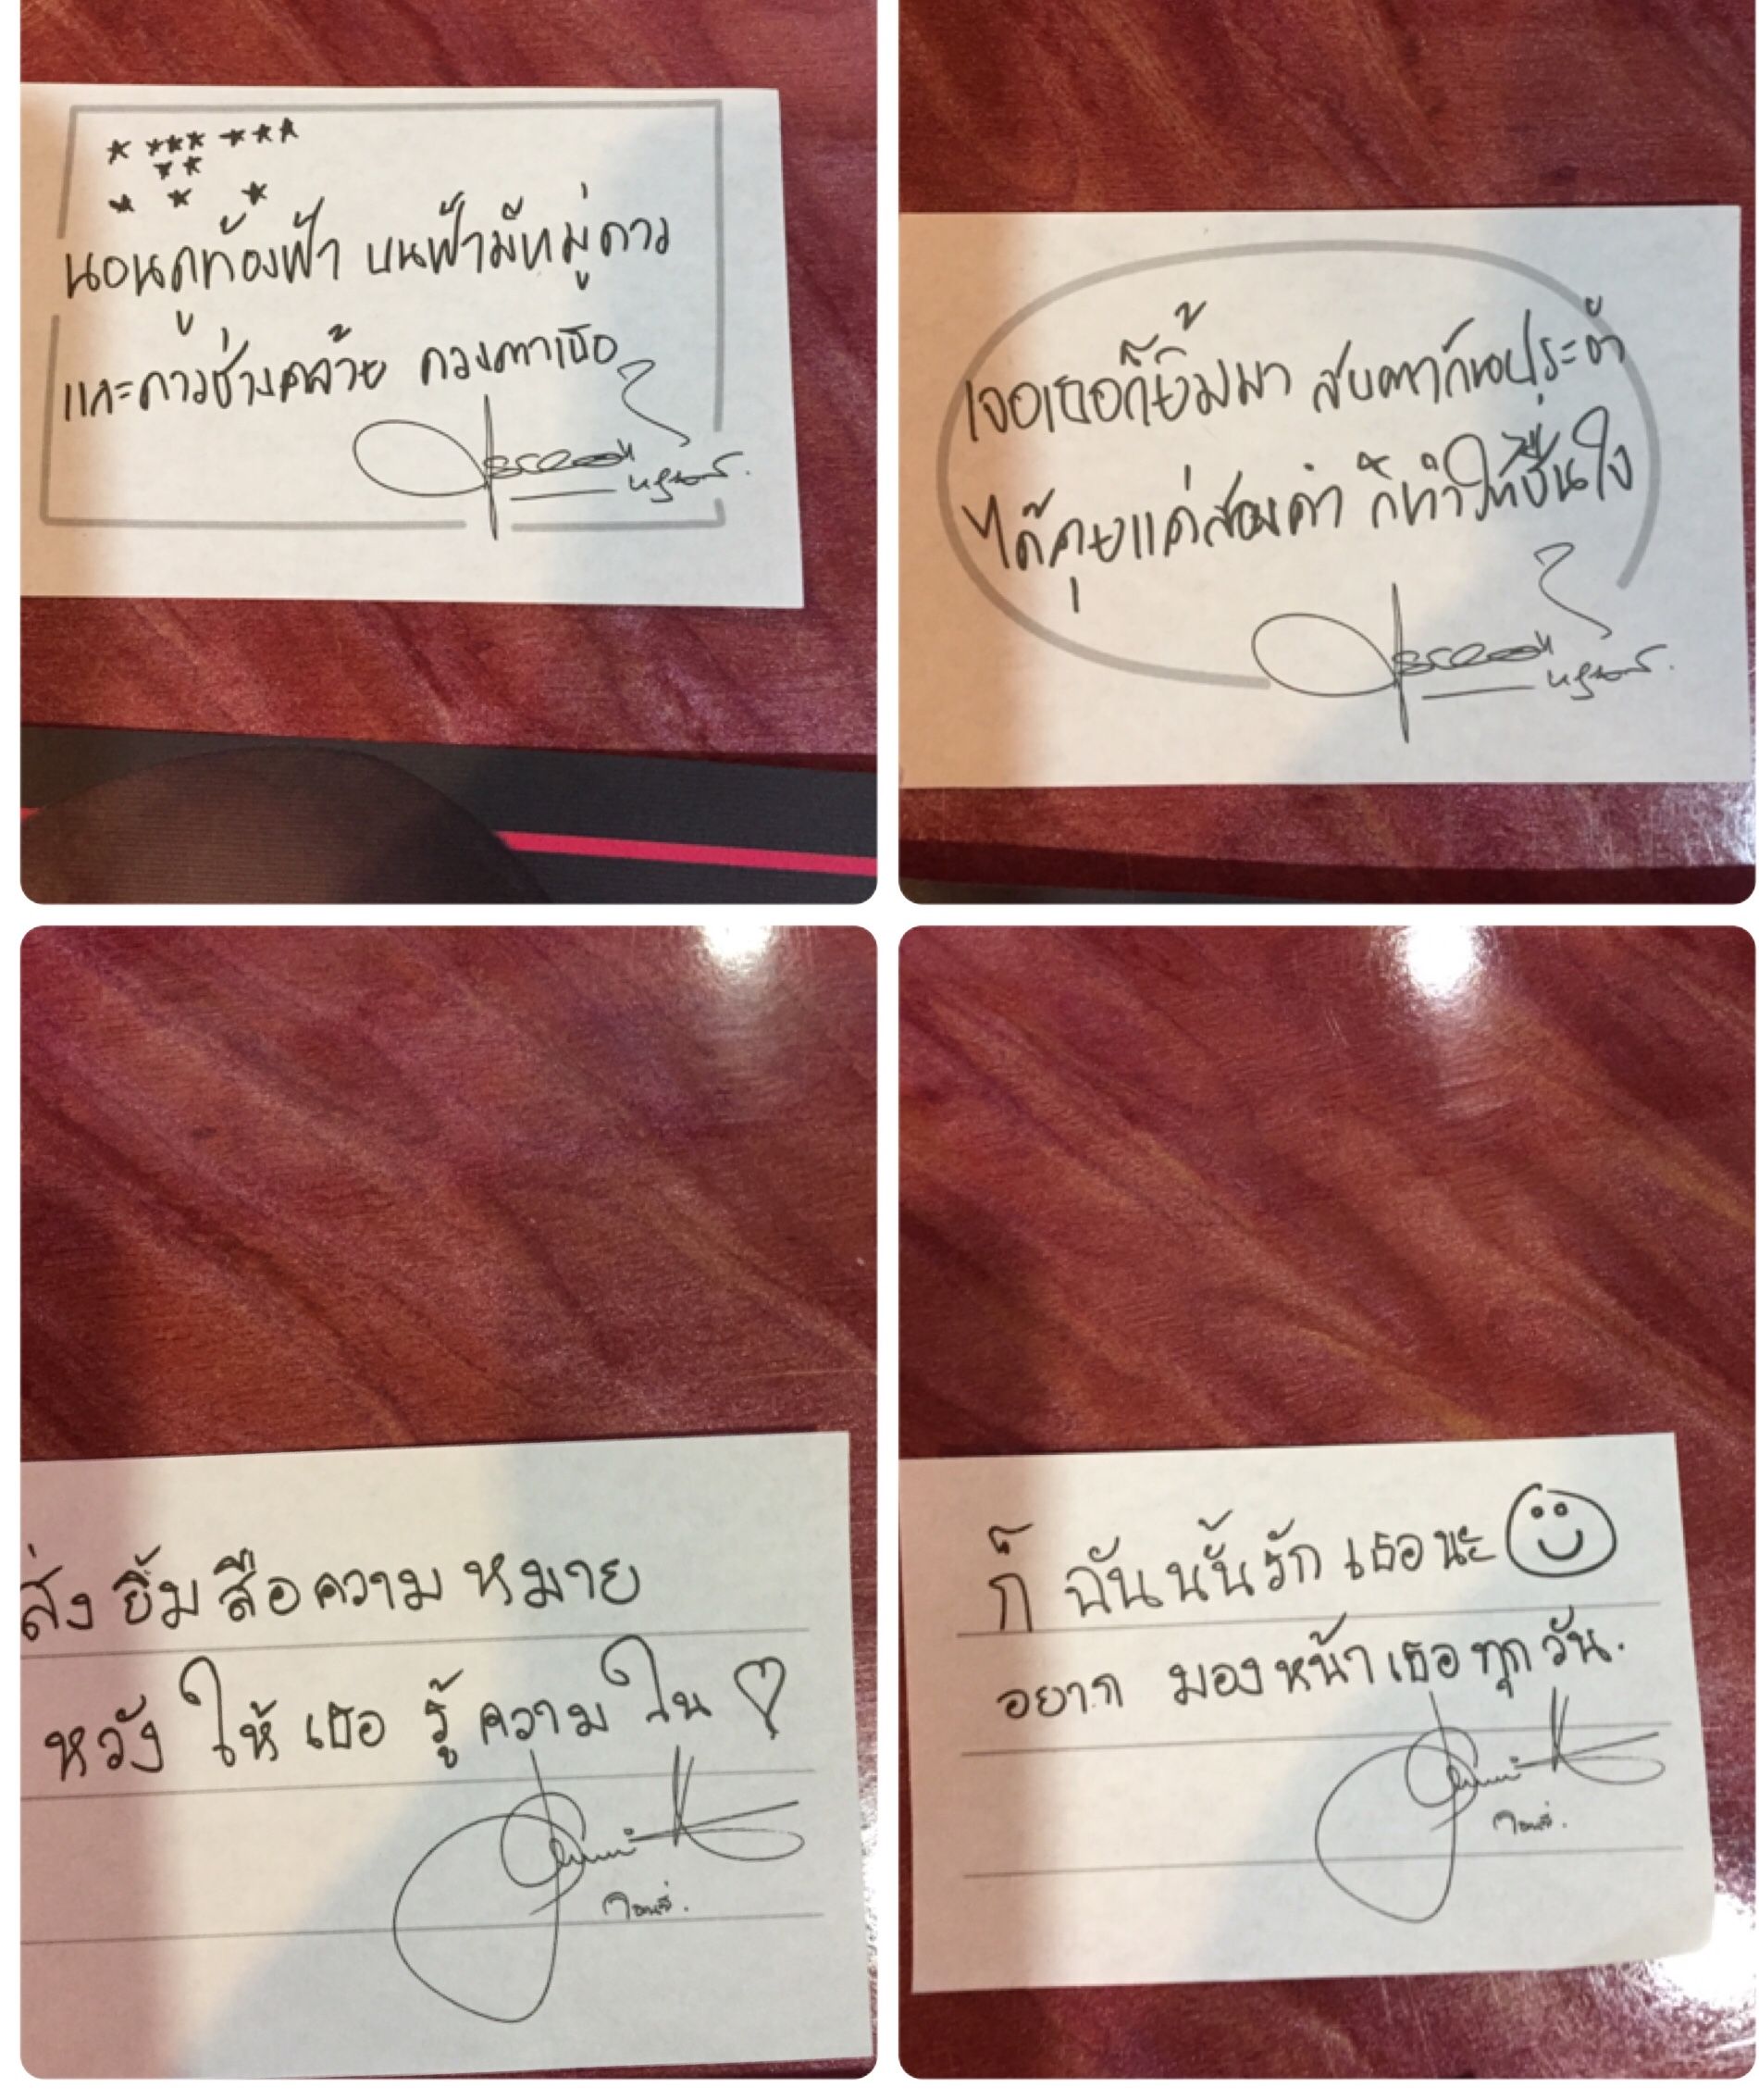 นอนดูท้องฟ้า บนฟ้ามีหมู่ดาว
และดาวช่างคล้าย ดวงตาเธอ
เจอเธอก็ยิ้มมา สบตาก็เขินประจำ
ได้คุยแค่สองคำ ก็ทำให้ชื่นใจ
ส่งยิ้มสื่อความหมาย
หวังให้เธอรู้ความใน
ก็ฉันนั้นรักเธอนะ
อยากมองหน้าเธอทุกวัน.